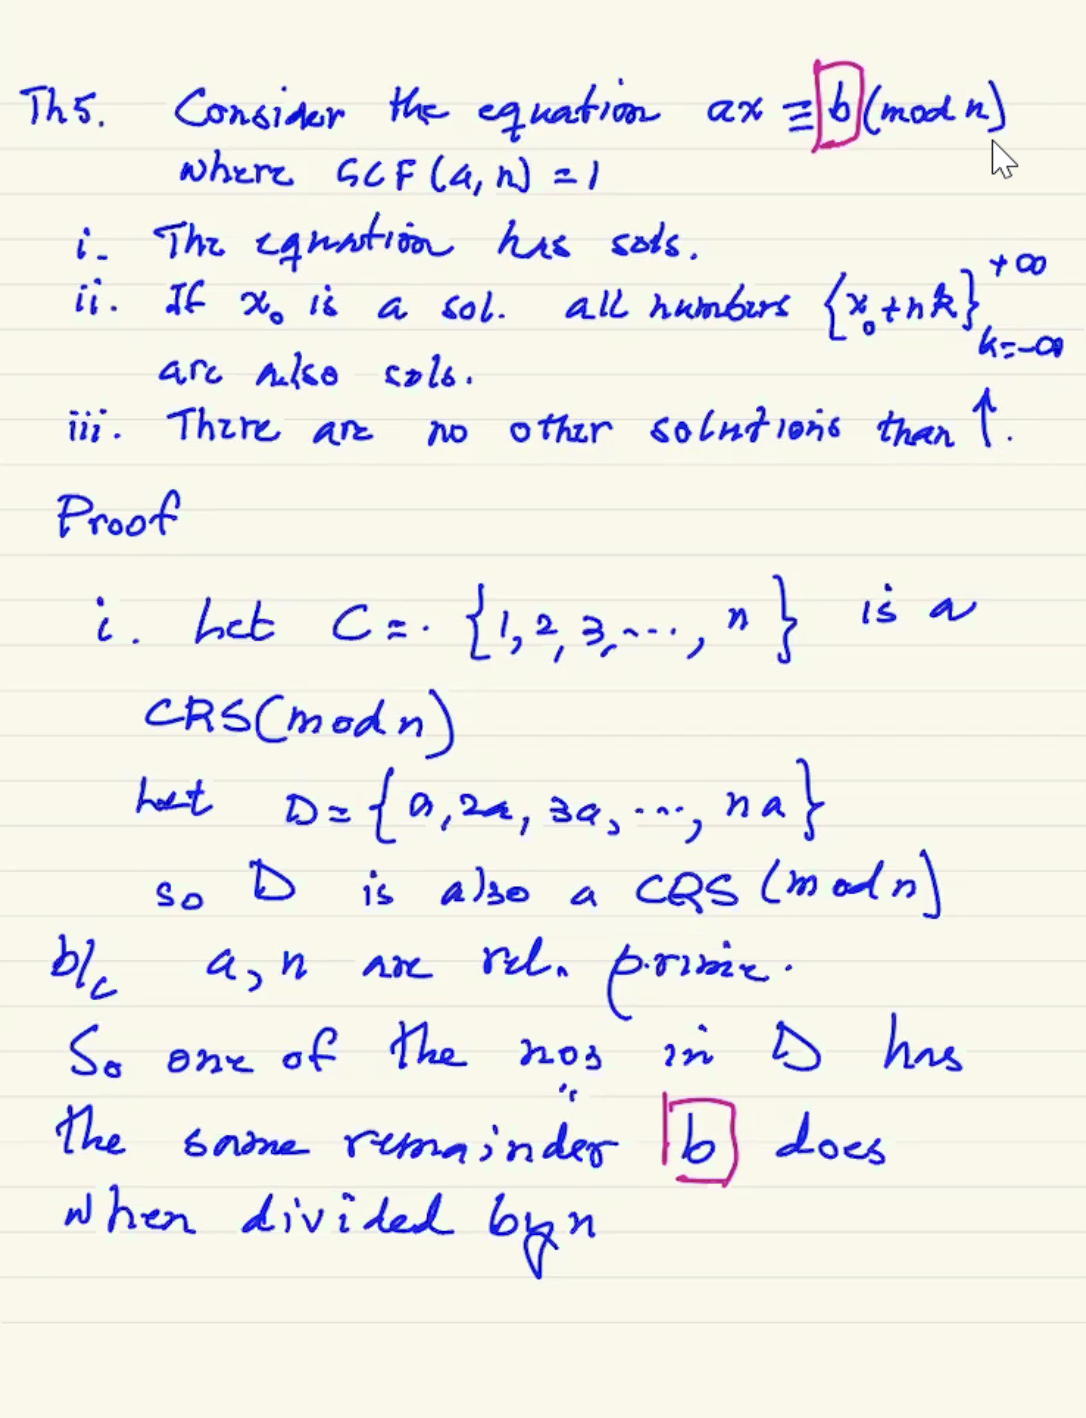 Th5. Consider the equation ax ≡ b (mod n)
where GCF (a, n) = 1
i. The equation has sols.
ii. If x₀ is a sol. all numbers {x₀+nk}^{+∞}_{k=-∞}
are also sols.
iii. There are no other solutions than ↑.
Proof
i. Let C = {1, 2, 3, ..., n} is a
CRS(mod n)
Let D = {a, 2a, 3a, ..., na}
so D is also a CRS (mod n)
b/c a, n are rel. prime.
So one of the nos in D has
the same remainder b does
when divided by n